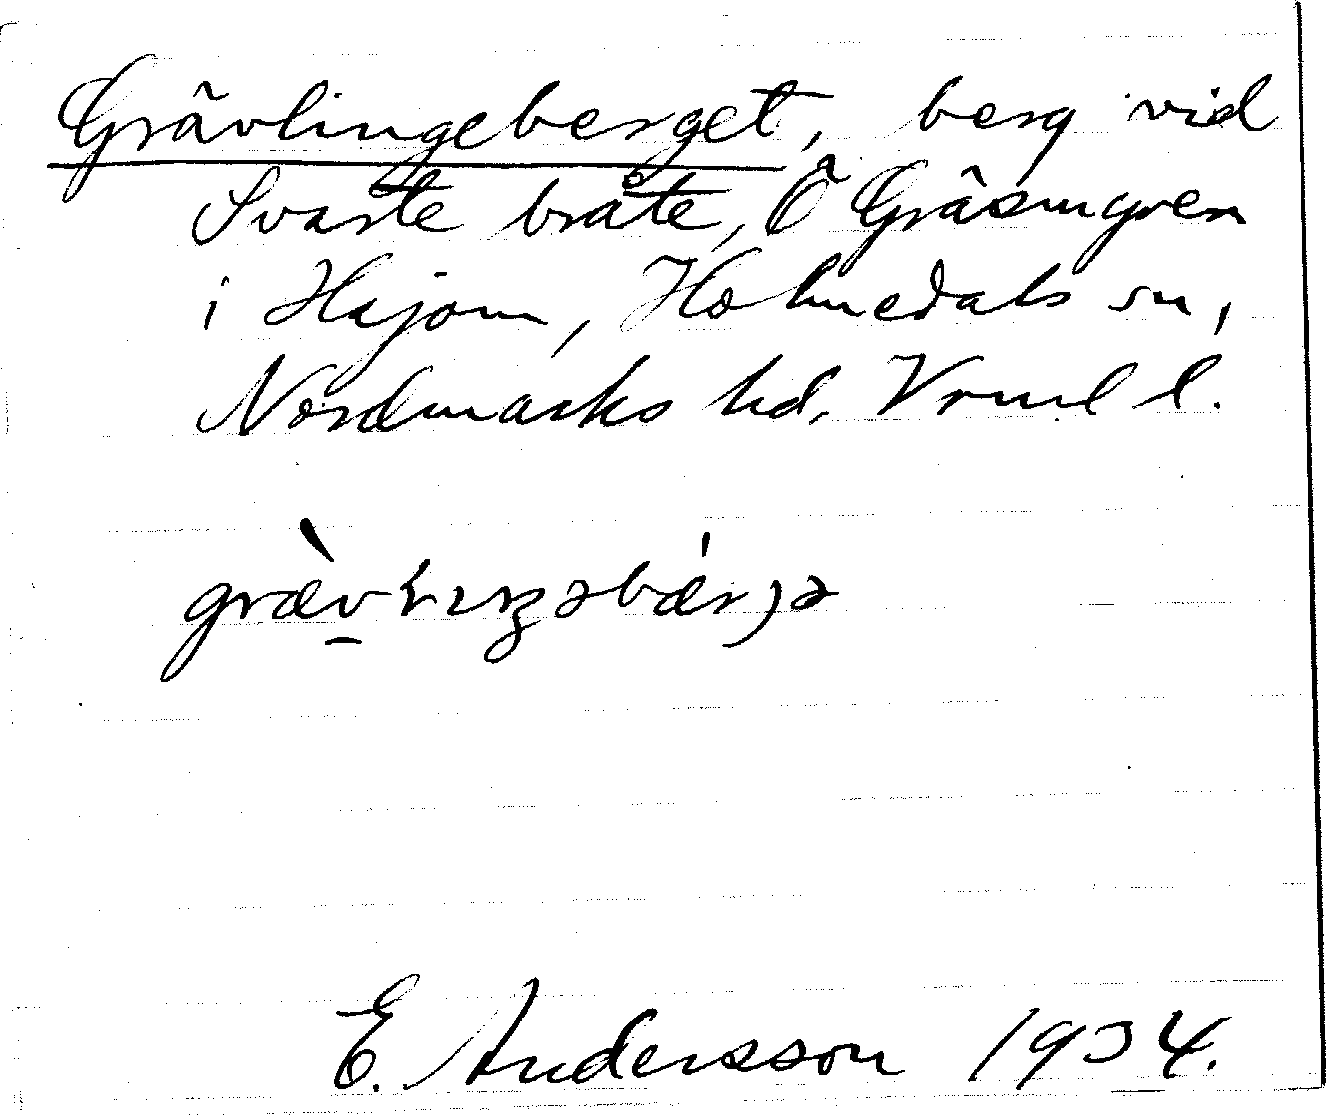 Grävlingeberget, berg vid
Svarte bråte, Ö Gräsmyren
i Hajom, Holmedals sn,
Nordmarks hd, Vrml l.
E. Andersson 1934.